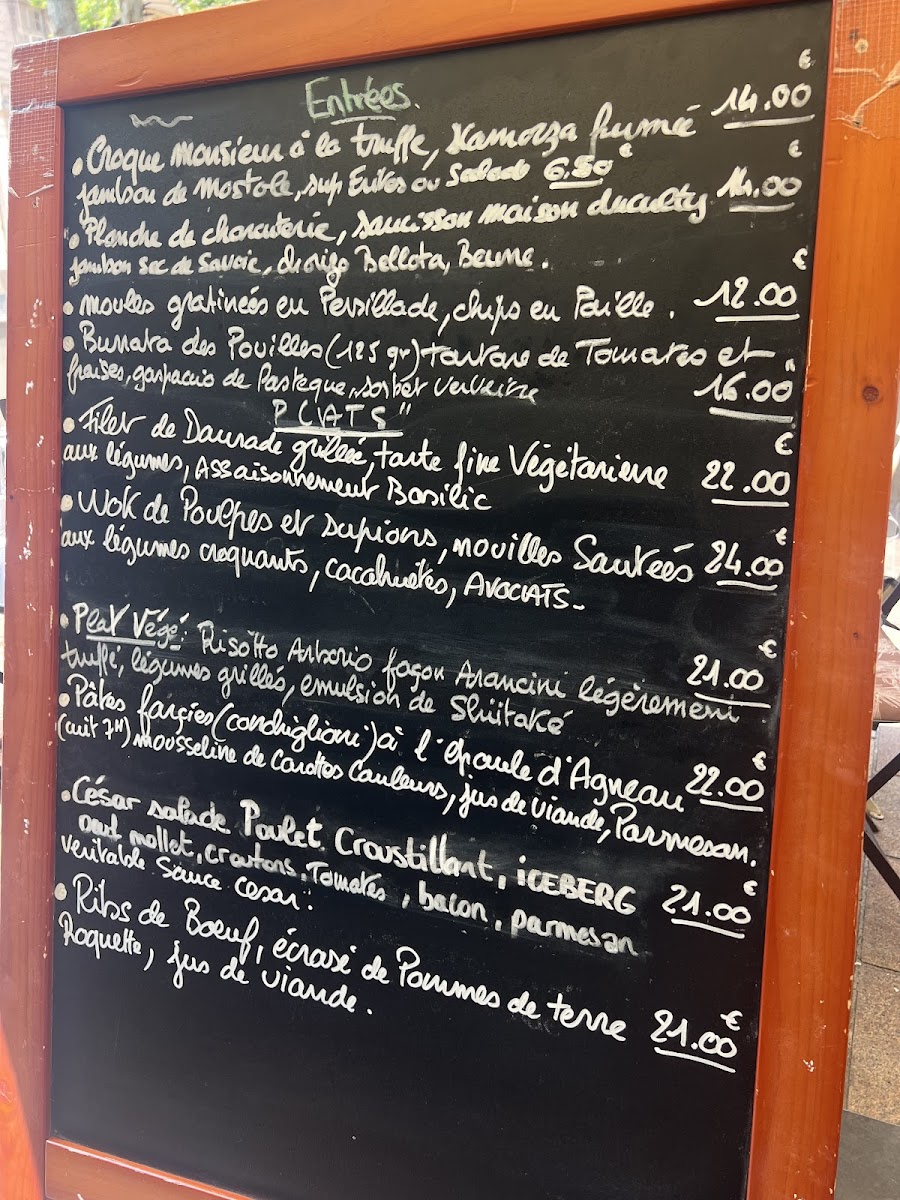 Entrées.
• Croque monsieur à la truffe, skamorza fumée 14.00 €
jambon de Mostole, sup Frites ou Salade 6.50 €
• Planche de charcuterie, saucisson maison duculty 14.00 €
jambon sec de Savoie, chorizo Bellota, Beurre.
• moules gratineés en Persillade, chips en Paille. 12.00 €
• Burrata des Pouilles (125 gr) tartare de Tomates et
fraises, gaspacio de Pasteque, sorbet verveine 16.00 "
PLATS"
• Filet de Daurade grillée, tarte fine Végétarienne 22.00 €
aux légumes, Assaisonnement Basilic
• Wok de Poulpes et supions, nouilles Sautées 24.00 €
aux légumes croquants, cacahuètes, AVOCATS-
• Plat Végé: Risotto Arborio façon Arancini légèrement 21.00 €
truffé, légumes grillés, emulsion de Shiitaké
• Pâtes farçies (conchiglioni) à l'épaule d'Agneau 22.00 €
(cuit 7H) mousseline de Carottes Couleurs, jus de viande, Parmesan.
• César salade Poulet Croustillant, iCEBERG 21.00 €
oeuf mollet, croutons, Tomates, bacon, parmesan
veritable Sauce cesar!
• Ribs de Boeuf, écrasé de Pommes de terre 21.00 €
Roquette, jus de viande.